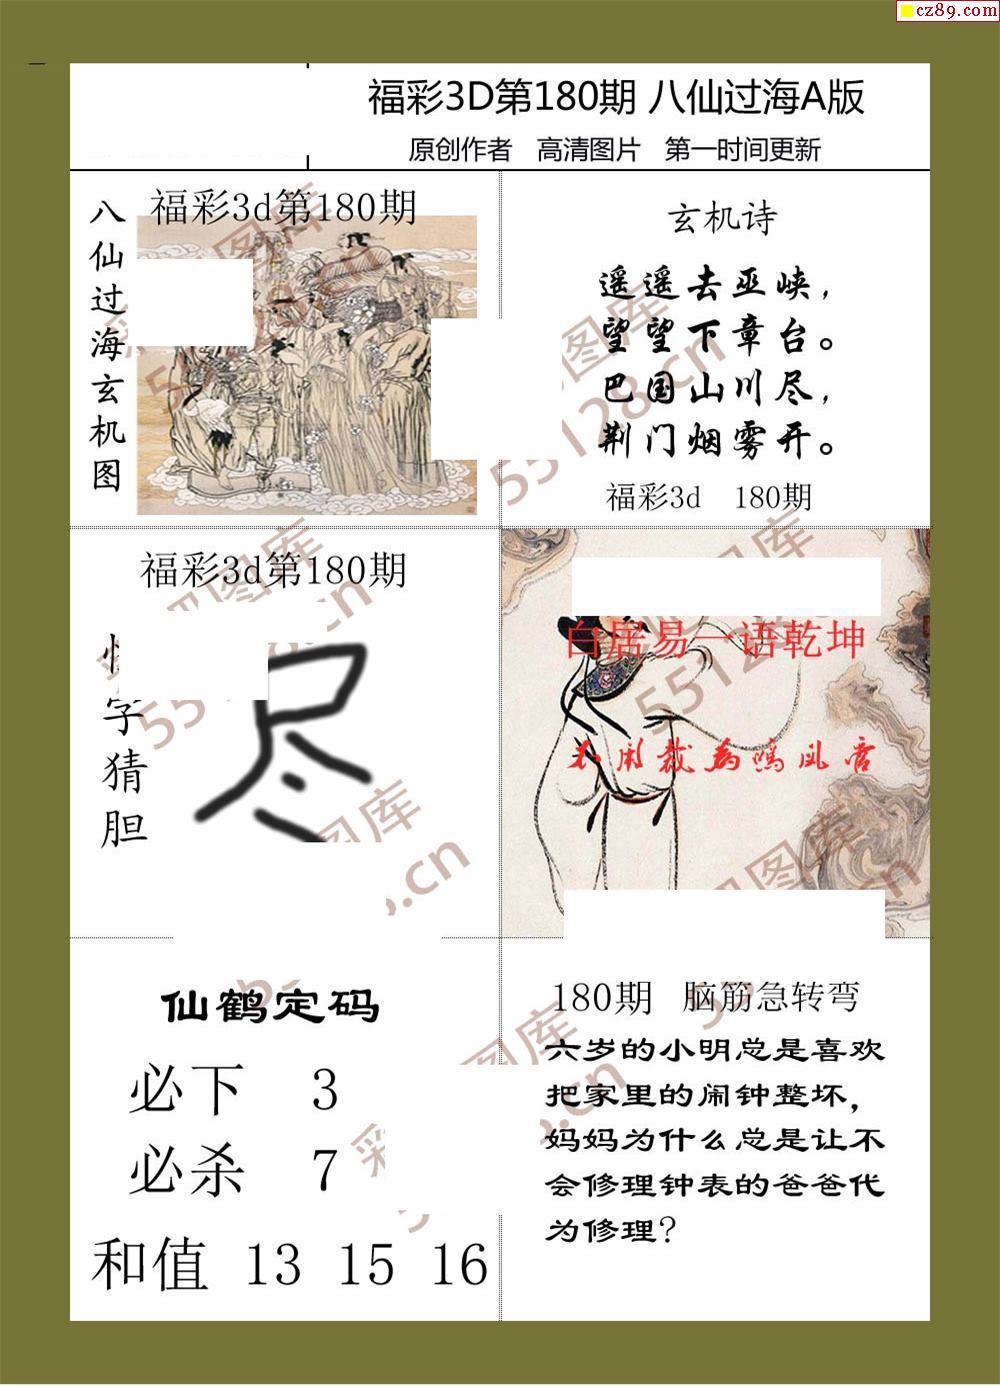 cz89.com
福彩3D第180期 八仙过海A版
原创作者 高清图片 第一时间更新
八仙过海玄机图
福彩3d第180期
玄机诗
遥遥去巫峡，
望望下章台。
巴国山川尽，
荆门烟雾开。
福彩3d 180期
福彩3d第180期
字猜胆
尽
白居易一语乾坤
不用裁为鸣凤管
仙鹤定码
必下 3
必杀 7
和值 13 15 16
180期 脑筋急转弯
六岁的小明总是喜欢
把家里的闹钟整坏，
妈妈为什么总是让不
会修理钟表的爸爸代
为修理？
55128.cn